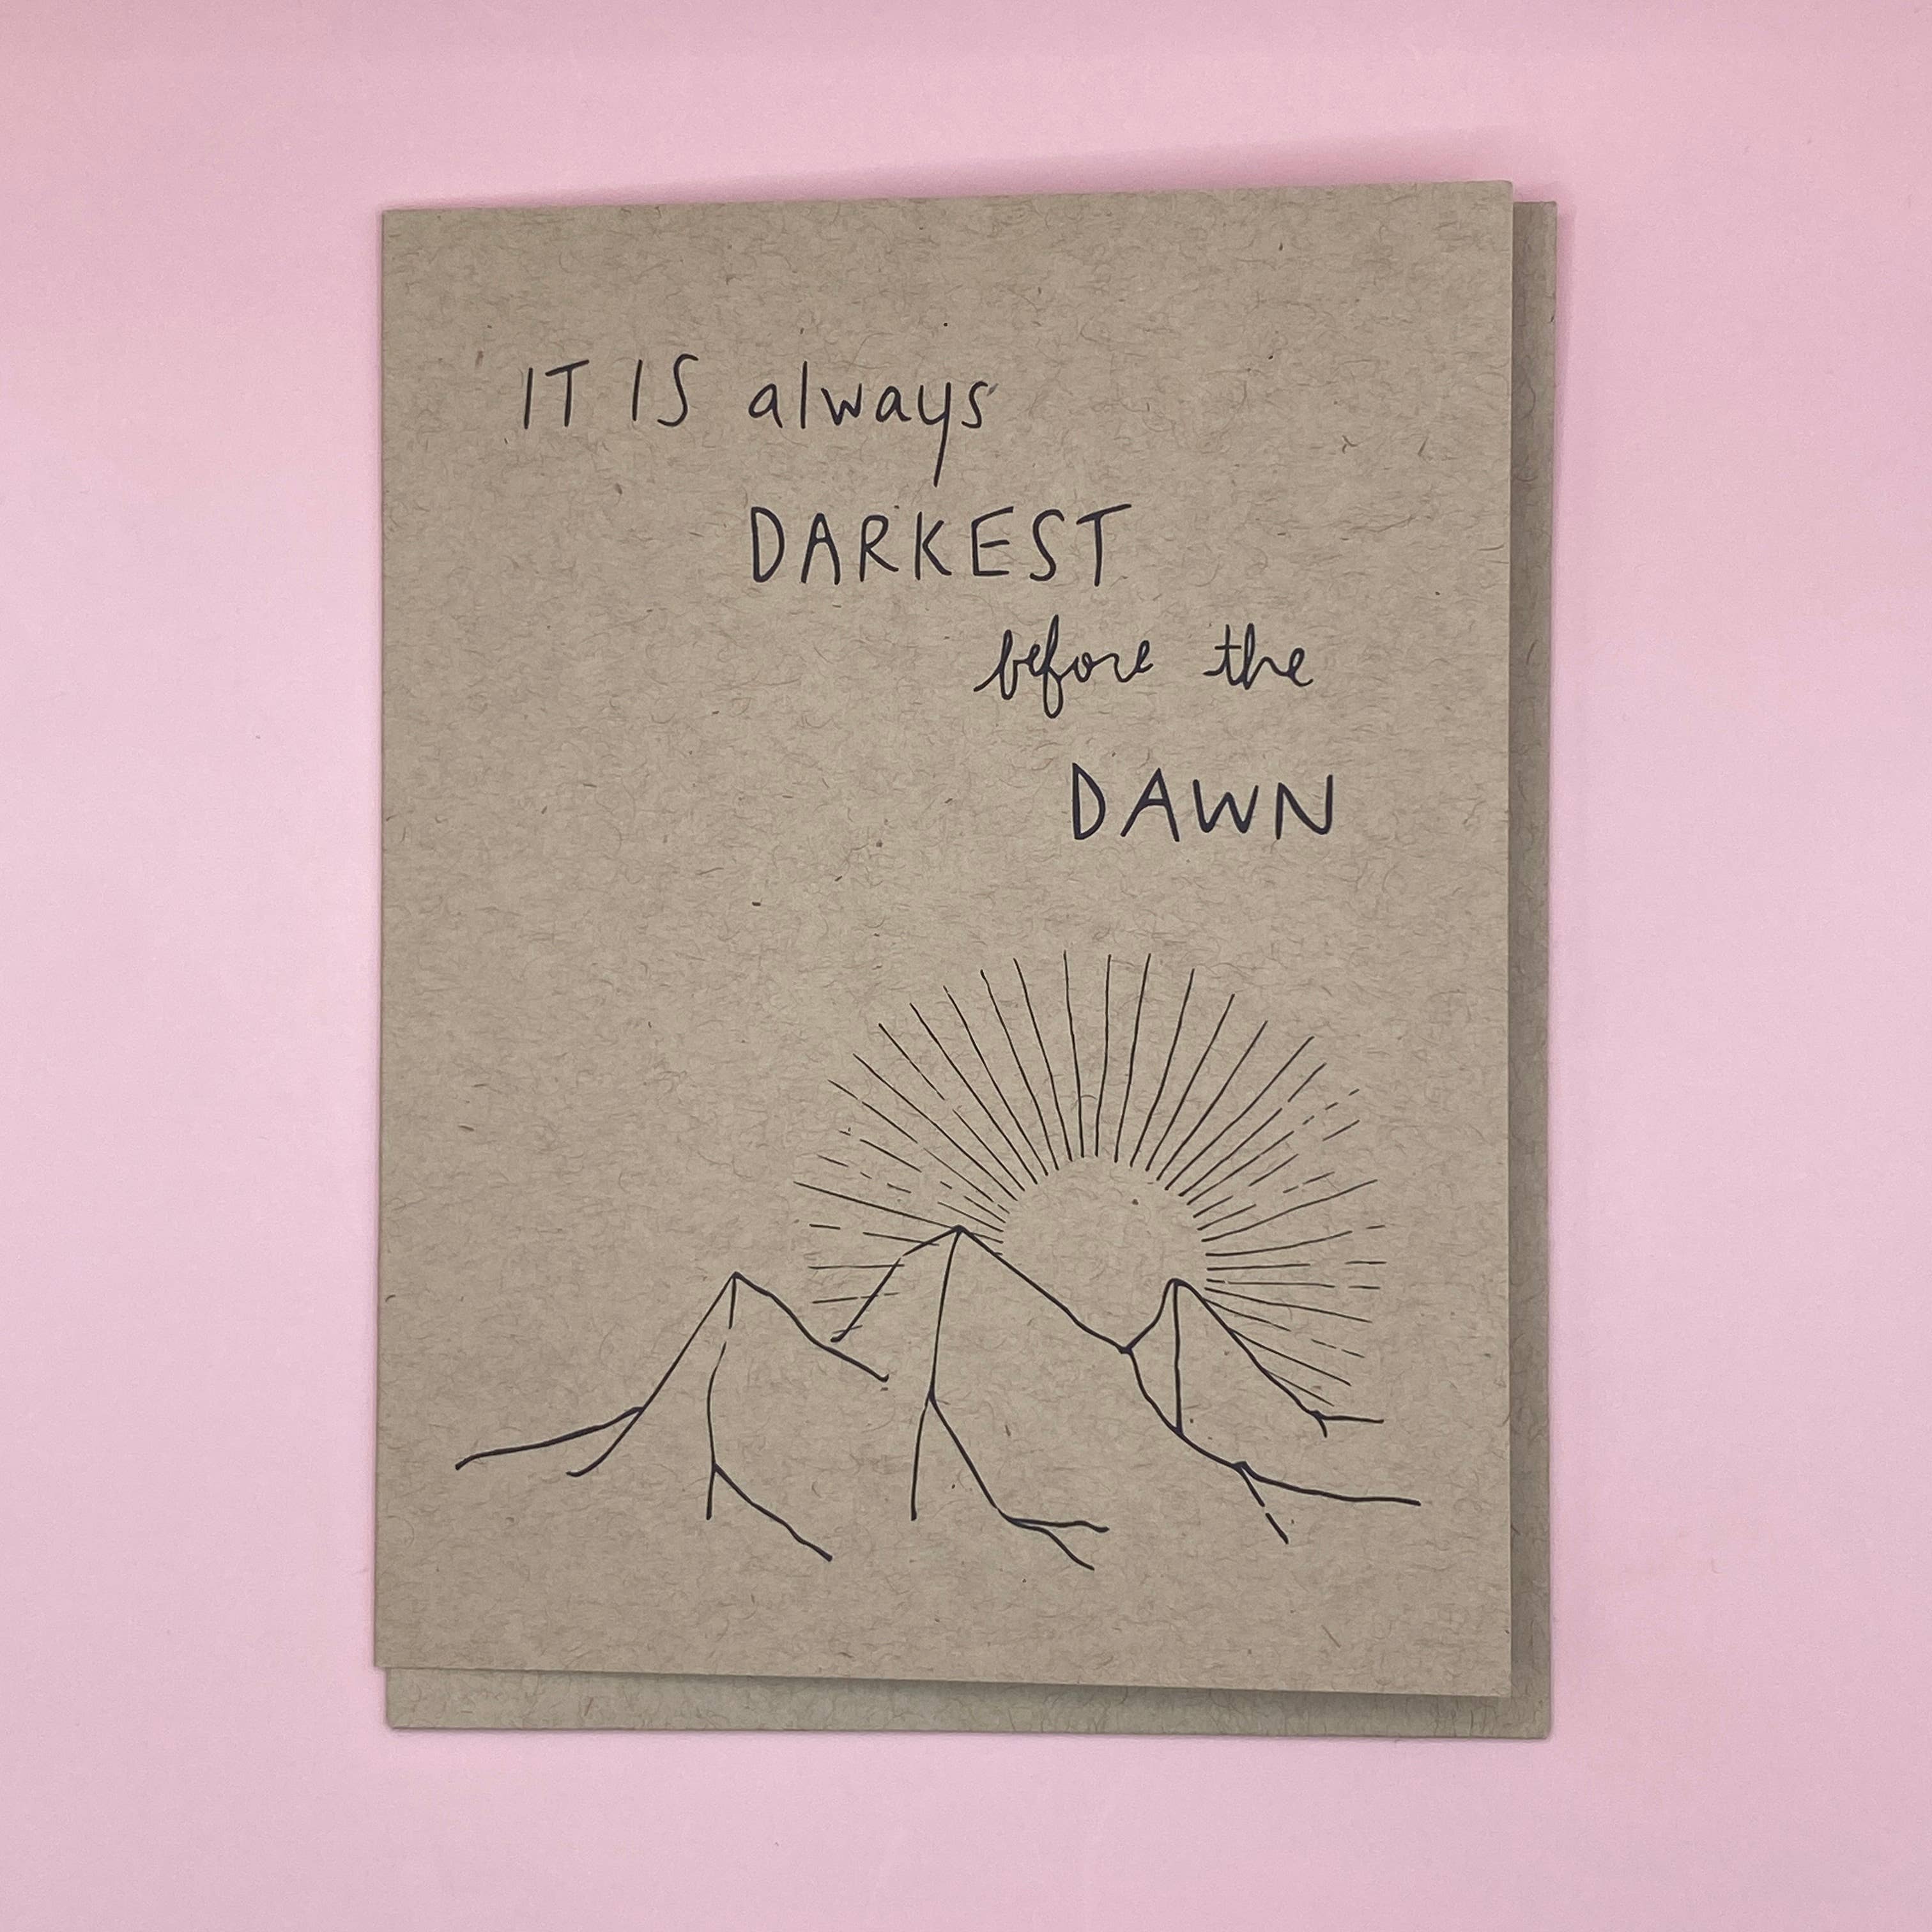 IT IS always
DARKEST
before the
DAWN